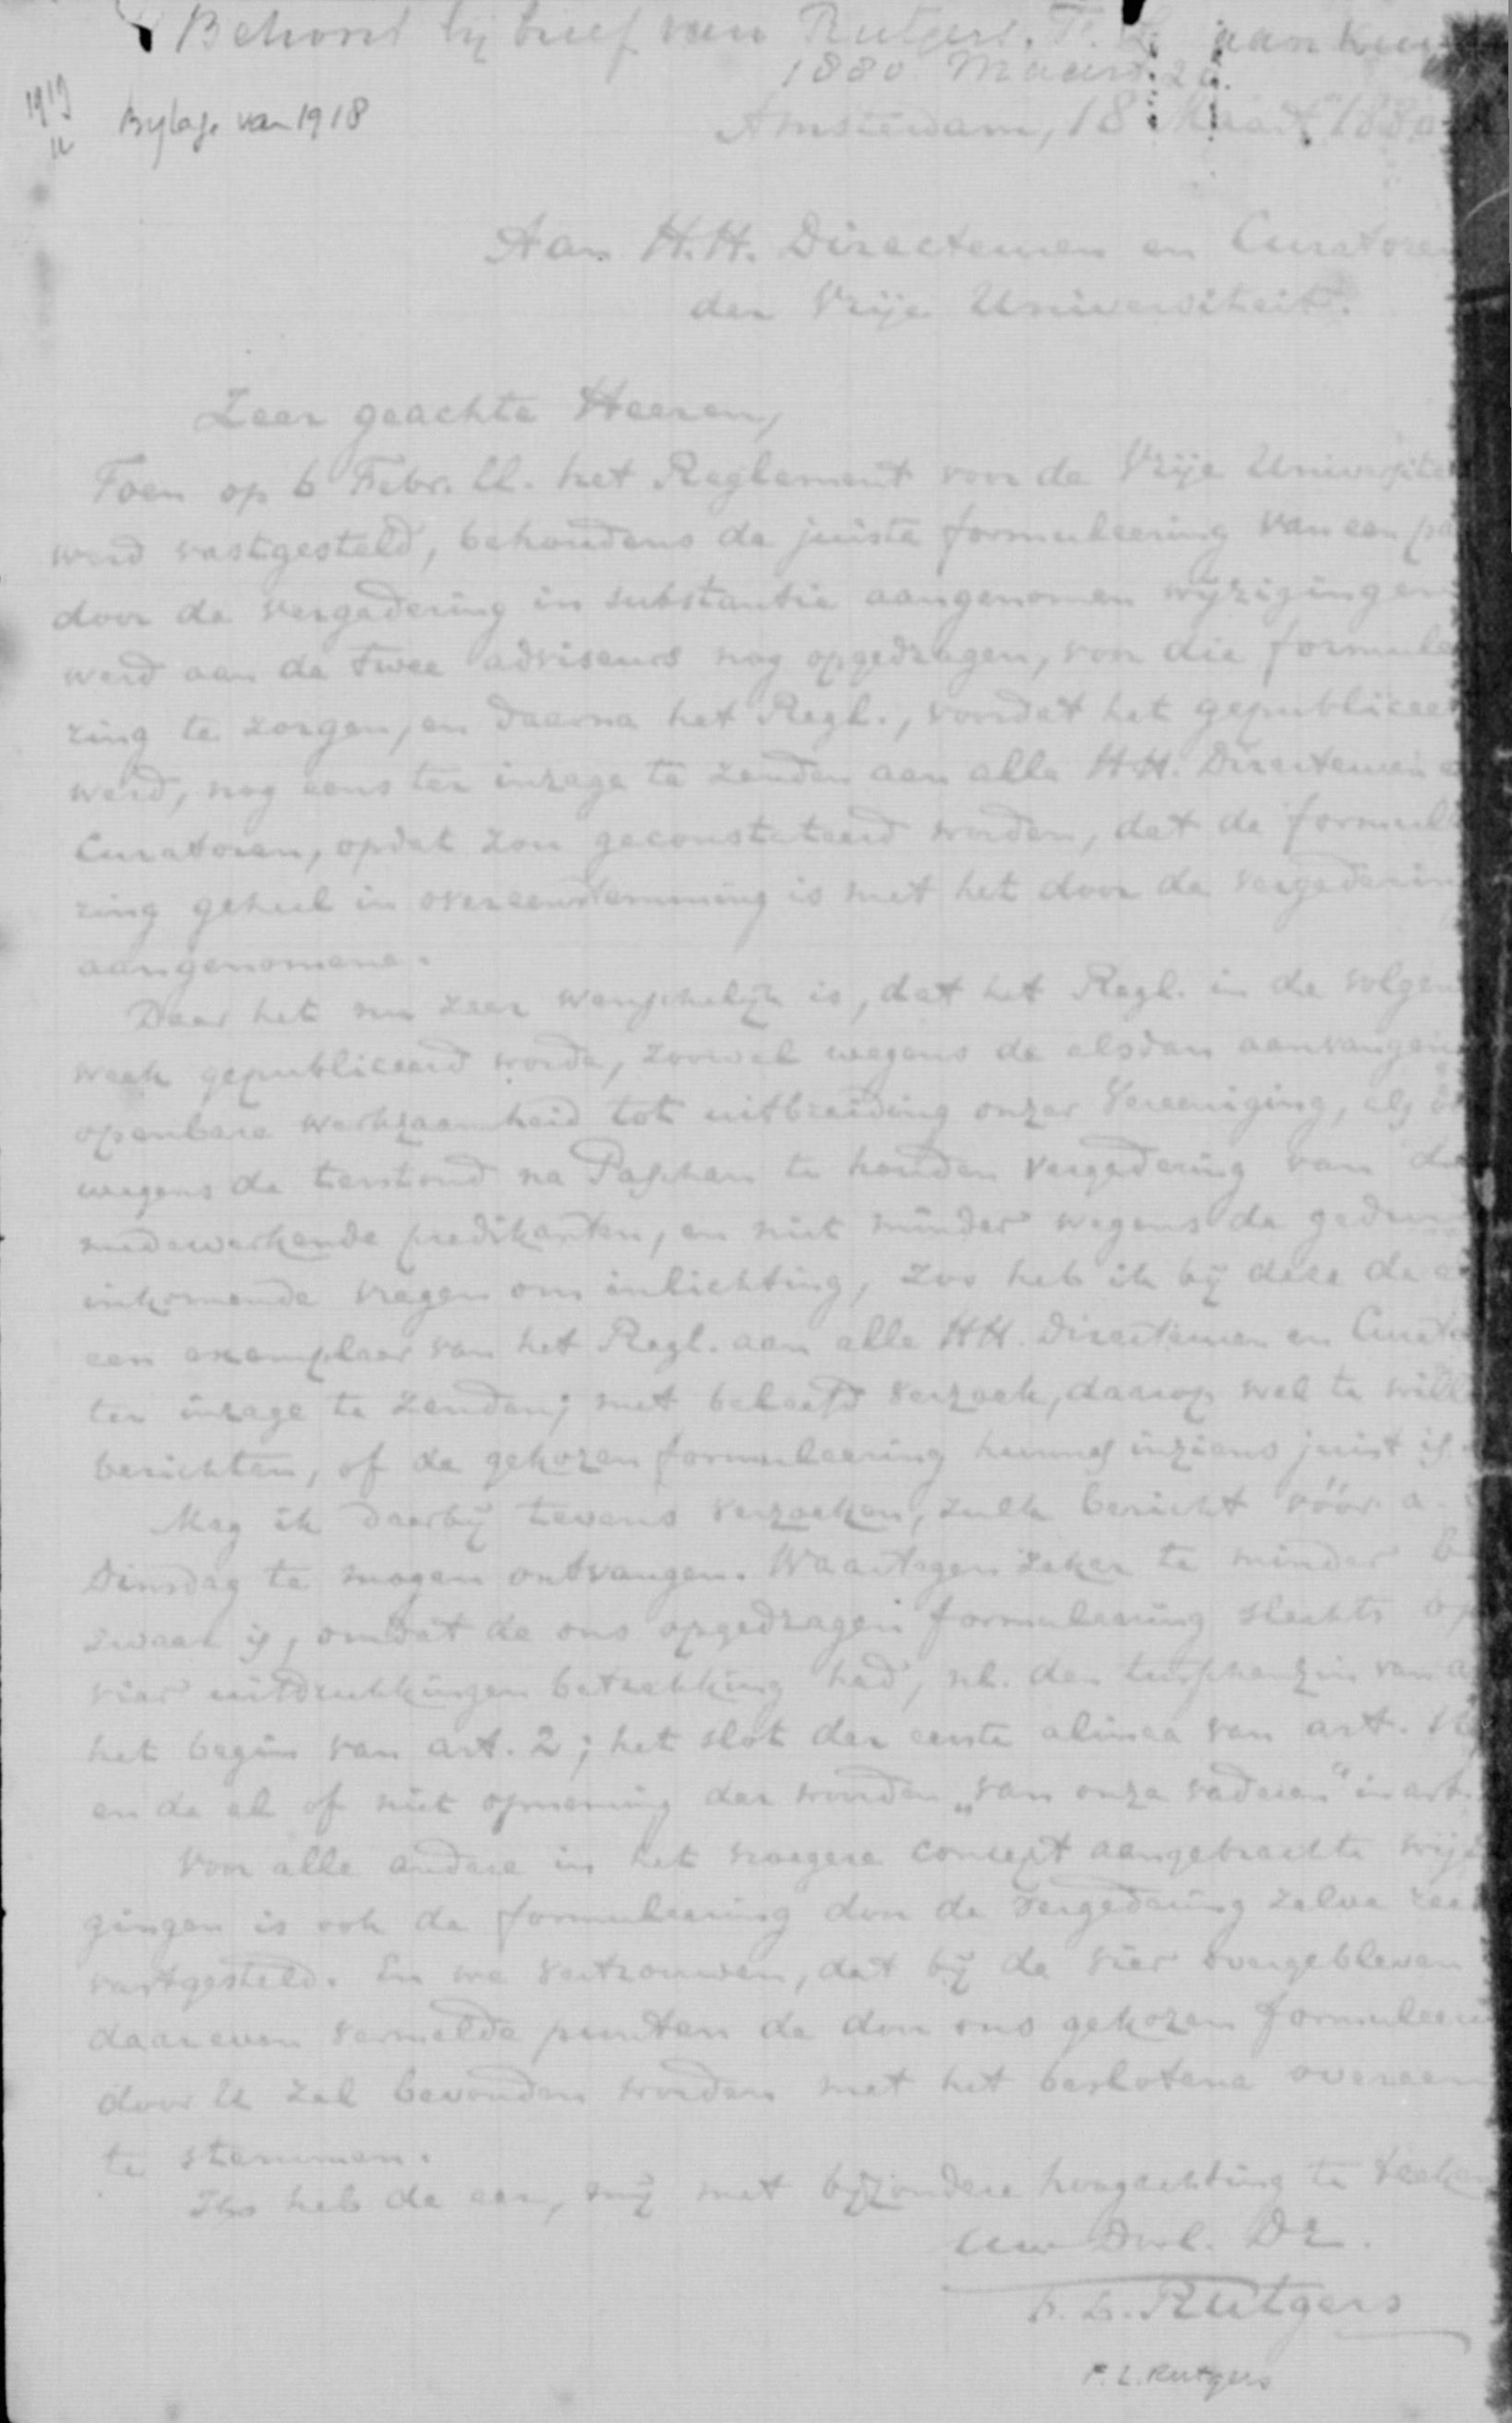 Behoort bij brief van Rutgers, F. L. aan
1880 Maart 20.
1919
Bylage van 1918
Amsterdam, 18 Maart 1880
Aan H.H. Directeuren en Curatoren
der Vrije Universiteit.
Zeer geachte Heeren,
Toen op 6 Febr. ll. het Reglement voor de Vrije Universite
werd vastgesteld, behoudens de juiste formuleering van een pa
door de vergadering in substantie aangenomen wijzigingen
werd aan de twee adviseurs nog opgedragen, voor die formulee
ring te zorgen, en daarna het Regl., voordat het gepubliceer
werd, nog eens ter inzage te zenden aan alle HH. Directeuren e
Curatoren, opdat zou geconstateerd worden, dat de formulee
ring geheel in overeenstemming is met het door de vergadering
aangenomene.
Daar het nu zeer wenschelijk is, dat het Regl. in de volgen
week gepubliceerd worde, zoowel wegens de alsdan aanvangen
openbare werkzaamheid tot uitbreiding onzer Vereeniging, als
wegens de terstond na Paschen te houden vergadering van de
medewerkende predikanten, en niet minder wegens de gedu
inkomende vragen om inlichting, zoo heb ik bij deze de
een exemplaar van het Regl. aan alle HH. Directeuren en Curato
ter inzage te zenden; met beleefd verzoek, daarop wel te wille
berichten, of de gekozen formuleering hunnes inziens juist is.
Mag ik daarbij tevens verzoeken, zulk bericht vóór a.
Dinsdag te mogen ontvangen. Waartegen zeker te minder be
zwaar is, omdat de ons opgedragen formuleering slechts op
vier uitdrukkingen betrekking had, nl. den tusschenzin van a
het begin van art. 2; het slot der eerste alinea van art.
en de al of niet opneming der woorden „van onze vaderen" in art.
Voor alle andere in het vroegere concept aangebrachte wijzi
gingen is ook de formuleering door de vergadering zelve reed
vastgesteld. En we vertrouwen, dat bij de vier overgebleven
daareven vermelde punten de door ons gekozen formuleeri
door U zal bevonden worden met het beslotene overeen
te stemmen.
Ik heb de eer, mij met bijzondere hoogachting te teeken
Uw Dwl. Dr.
F. L. Rutgers
F. L. Rutgers